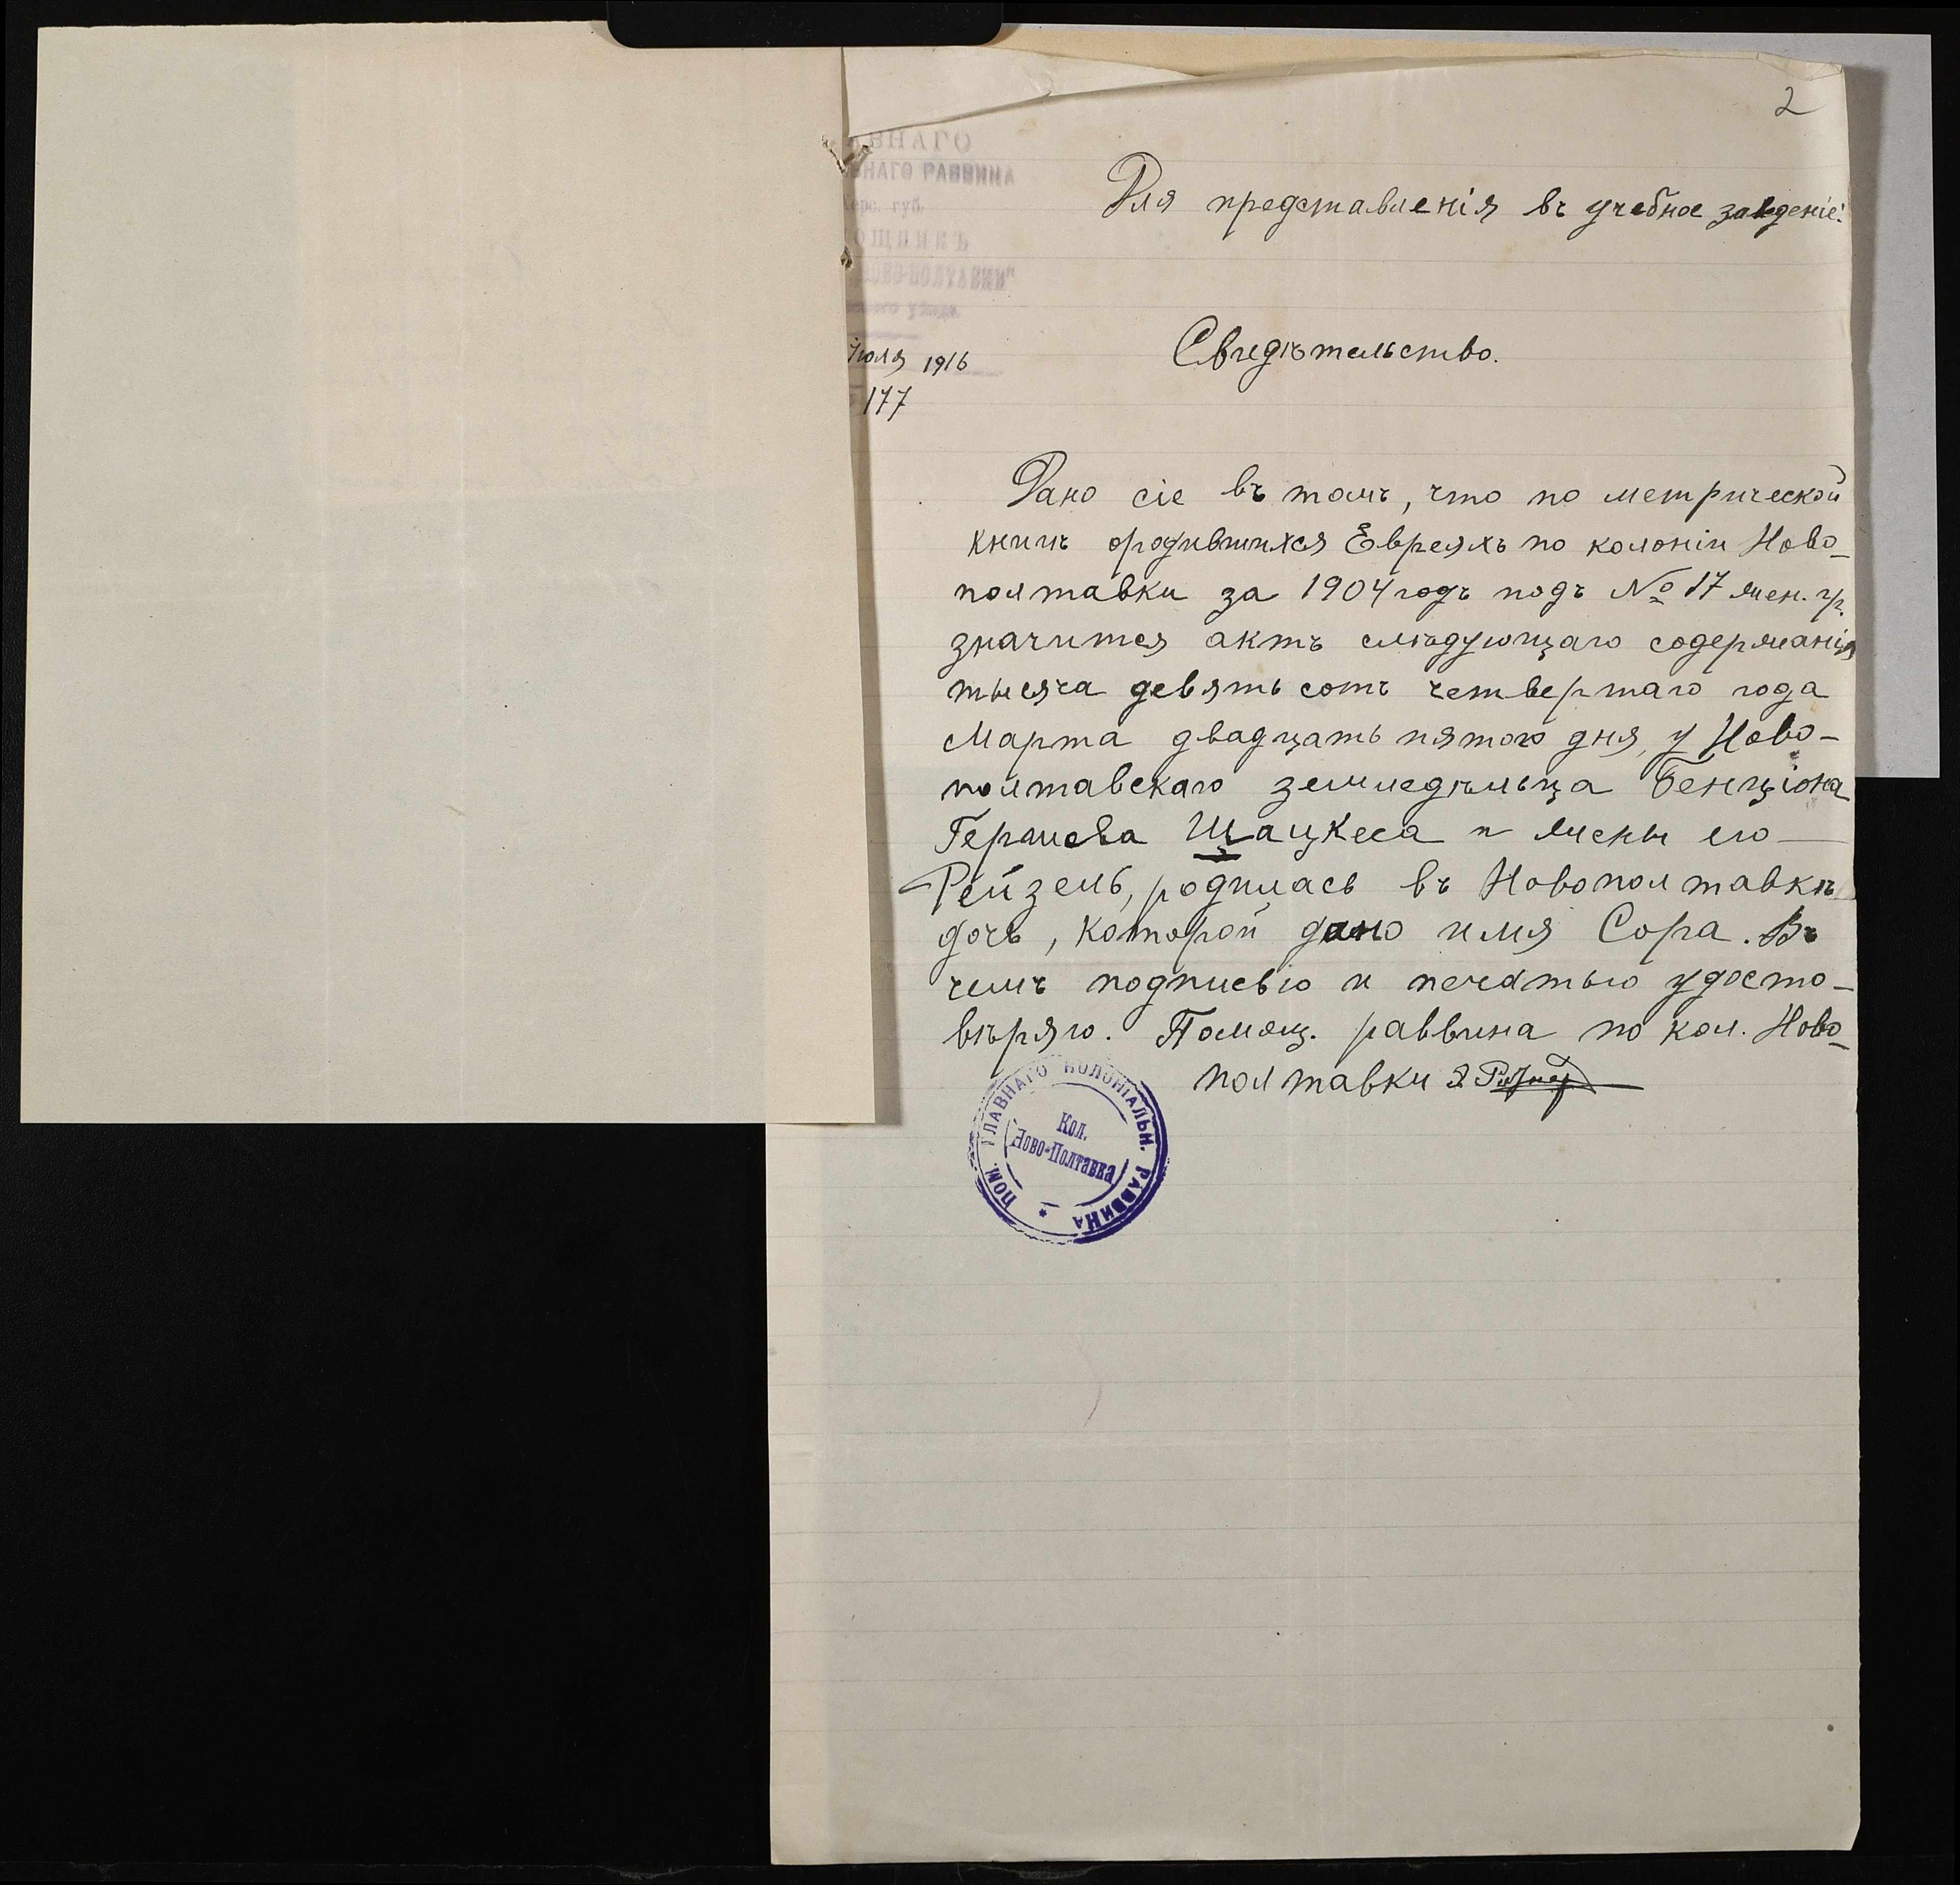 2
ВНАГО
ЬНАГО РАВВИНА
Херс. губ.
ОЩНИКЪ
НОВО-ПОЛТАВКИ"
уѣзда
Для представленія въ учебное заведеніе.
Іюля 1916
177
Свидѣтельство.
Дано сіе въ томъ, что по метрической
книгѣ о родившихся Евреяхъ по колоніи Ново-
полтавки за 1904 годъ подъ № 17 жен. гр.
значится актъ слѣдующаго содержанія
тысяча девятьсотъ четвертаго года
Марта двадцать пятого дня, у Ново-
полтавскаго земледѣльца Бенціона
Гершова Шацкеса и жены его
Рейзель, родилась въ Новополтавкѣ
дочь, которой дано имя Сора. Въ
чемъ подписью и печатью удосто-
вѣряю. Помощ. раввина по кол. Ново-
полтавки
ПОМ. ГЛАВНАГО КОЛОНІАЛЬН. РАВВИНА *
Кол.
Ново-Полтавка